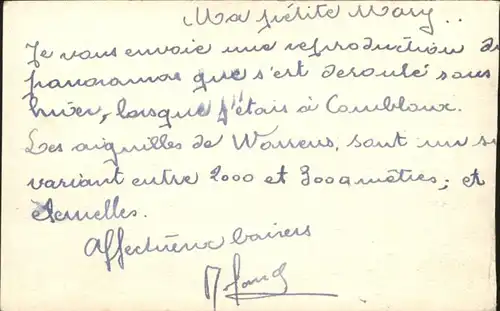 Ma petite Mary..
Je vous envoie une reproduction du
panoramas que s'est deroulé sous
hiver, lorsque j'étais à Combloux.
Les aiguilles de Warens, sont un
variant entre 2000 et 300amètres; et
éternelles.
Affectueux baisers